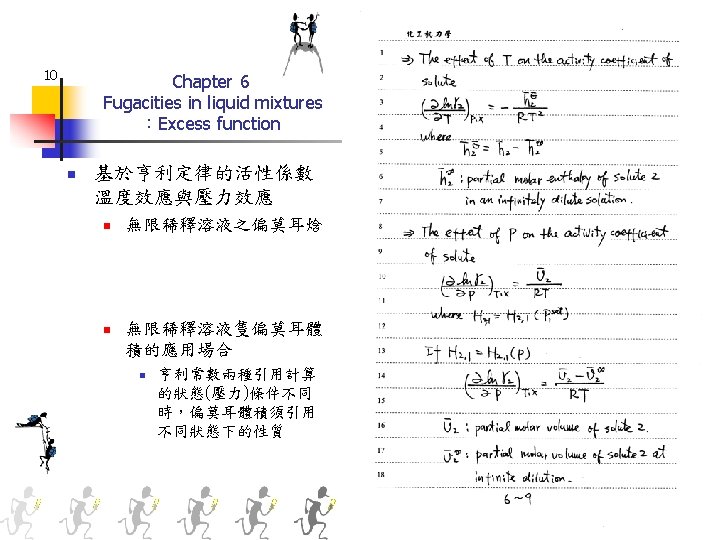 10
Chapter 6
Fugacities in liquid mixtures
：Excess function
基於亨利定律的活性係數
溫度效應與壓力效應
無限稀釋溶液之偏莫耳焓
無限稀釋溶液隻偏莫耳體
積的應用場合
亨利常數兩種引用計算
的狀態(壓力)條件不同
時，偏莫耳體積須引用
不同狀態下的性質
化工熱力學
1 ⇒ The effect of T on the activity coefficient of
2 solute
3 (∂lnγ₂/∂T)P,x = - h̄₂ᴱ/RT²
4 where
5 h̄₂ᴱ = h̄₂ - h̄₂^∞
6 h̄₂^∞ : partial molar enthalpy of solute 2
7 in an infinitely dilute solution.
8 ⇒ The effect of P on the activity coefficient
9 of solute
10 (∂lnγ₂/∂P)T,x = v̄₂/RT
11
12 where H₂,₁ = H₂,₁ (P^sat)
13 If H₂,₁ = H₂,₁(P)
14 (∂lnγ₂/∂P)T,x = v̄₂ - v̄₂^∞/RT
15
16 v̄₂ : partial molar volume of solute 2.
17 v̄₂^∞ : partial molar volume of solute 2 at
18 infinite dilution.
6~9